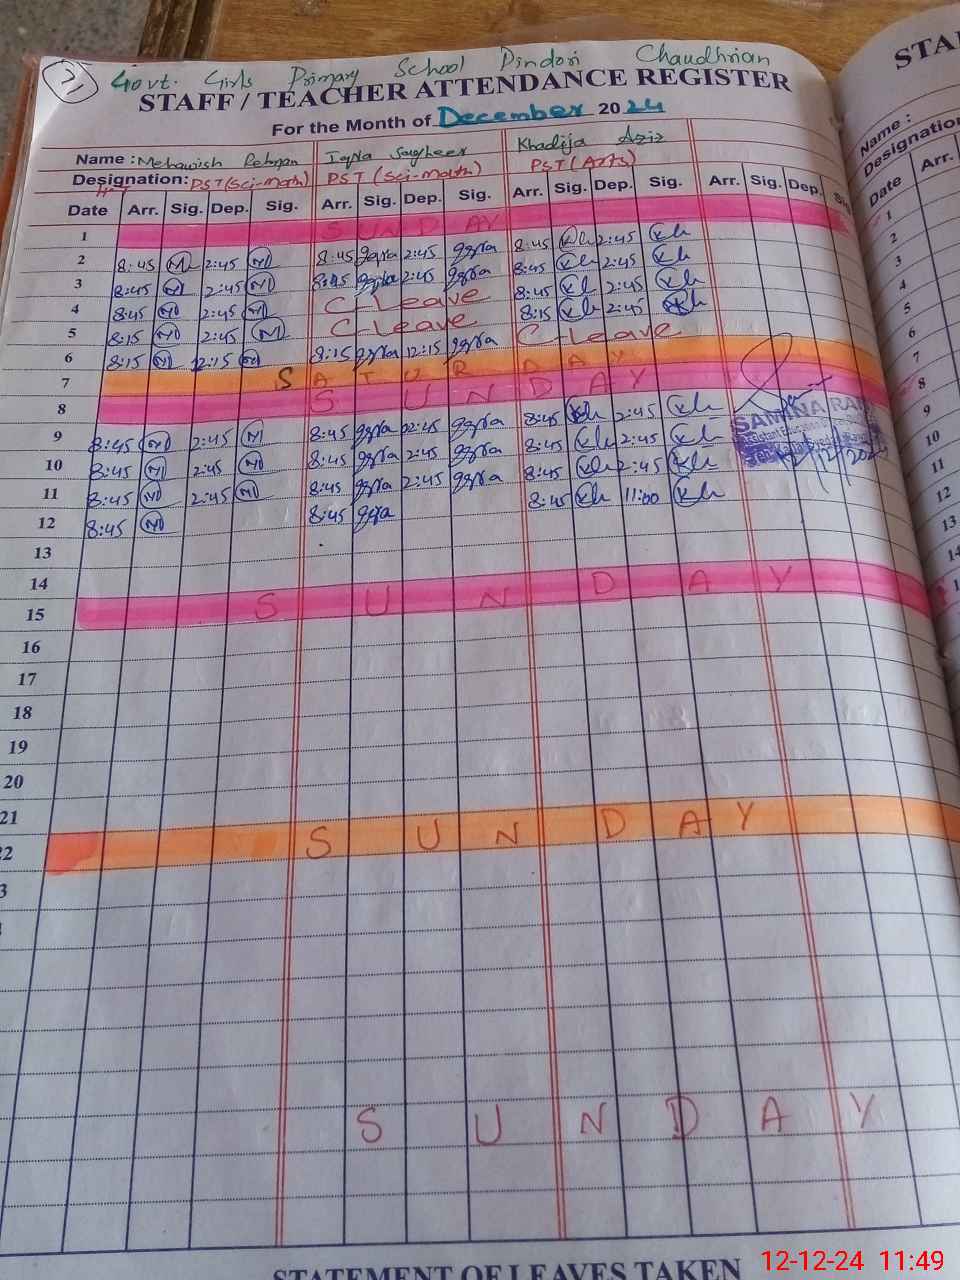 2 Govt. Girls Primary School Pindori Chaudhrian
STAFF / TEACHER ATTENDANCE REGISTER STA
For the Month of December 2024
Name : Mehawish Rehman Iqra Sagheer Khadija Aziz Name :
Designation: PST(Sci-math) PST (Sci-math) PST (Arts) Designation
HT
Date Arr. Sig. Dep. Sig. Arr. Sig. Dep. Sig. Arr. Sig. Dep. Sig. Arr. Sig. Dep. Sig Date Arr.
1 SUNDAY 1
2 8:45 M 2:45 M 8:45 Iqra 2:45 Iqra 8:45 Kh 2:45 Kh 2
3 8:45 M 2:45 M 8:45 Iqra 2:45 Iqra 8:45 Kh 2:45 Kh 3
4 8:45 M 2:45 M C-Leave 8:45 Kh 2:45 Kh 4
5 8:15 M 2:45 M C-Leave 8:15 Kh 2:45 Kh 5
6 8:15 M 12:15 M 8:15 Iqra 12:15 Iqra C-Leave 6
7 SATURDAY 7
8 SUNDAY 8
9 8:45 M 2:45 M 8:45 Iqra 02:45 Iqra 8:45 Kh 2:45 Kh SAMINA RA 9
10 8:45 M 2:45 M 8:45 Iqra 2:45 Iqra 8:45 Kh 2:45 Kh 10
11 8:45 M 2:45 M 8:45 Iqra 2:45 Iqra 8:45 Kh 2:45 Kh 12/12/202 11
12 8:45 M 8:45 Iqra 8:45 Kh 11:00 Kh 12
13 13
14 14
15 SUNDAY 1
16
17
18
19
20
21
22 SUNDAY
3
SUNDAY
STATEMENT OF LEAVES TAKEN
12-12-24 11:49